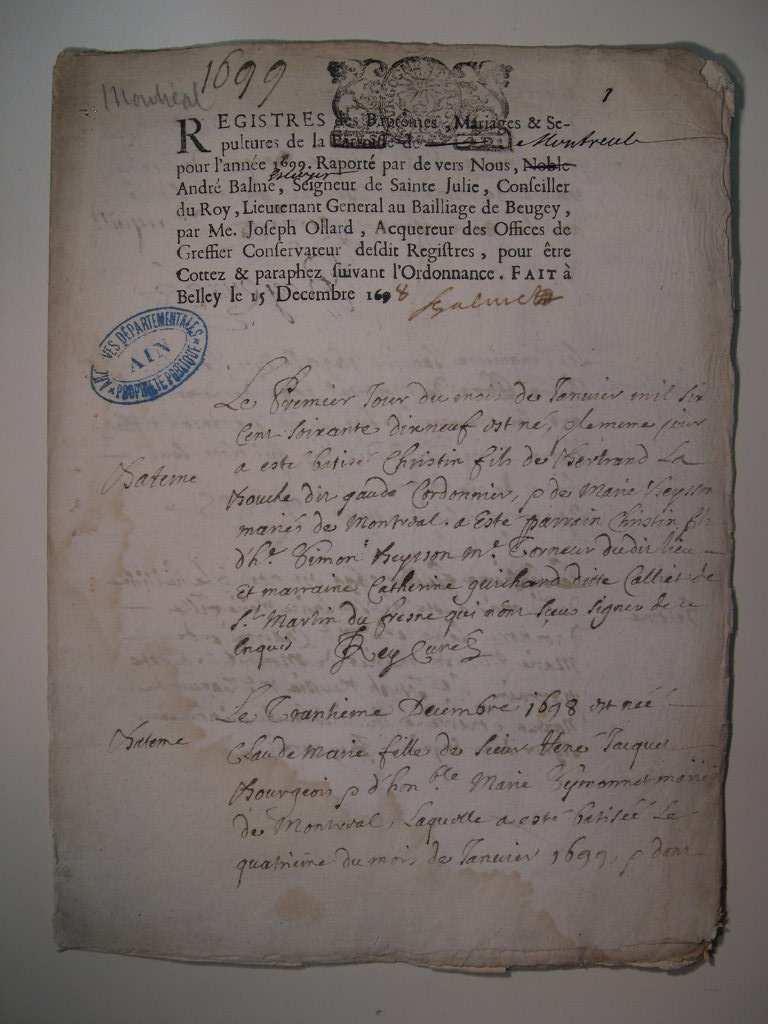 1699
Montréal
1
REGISTRES des Baptêmes, Mariages & Se-
pultures de la Parroisse de Montreal
pour l'année 1699. Raporté par de vers Nous, Noble
André Balme, Seigneur de Sainte Julie, Conseiller
du Roy, Lieutenant General au Bailliage de Beugey,
par Me. Joseph Ollard, Acquereur des Offices de
Greffier Conservateur desdit Registres, pour être
Cottez & paraphez suivant l'Ordonnance. FAIT à
Belley le 15 Decembre 1698 Balme
ARCHIVES DÉPARTEMENTALES
AIN
PROPRIÉTÉ PUBLIQUE
Le Premier Jour du mois de Janvier mil six
cent soixante dixneuf est né, & le meme jour
Bateme
a esté batisé Christin fils de Bertrand La
Bouche dit gaude Cordonnier, & de Marie Beysson
mariés de Montreal. a Esté parrain Christin fils
d'h.e Simon Beysson m.e Torneur dudit lieu
Et marraine Catherine guichand ditte Calliet de
S.t Martin du fresne qui n'ont sceu signer de ce
Enquis Rey Curé
Le Trantieme Decembre 1698 est née
Bateme
Claude Marie fille de sieur Jacques
Bourgeois & d'hon.ble Marie mariés
de Montreal, Laquelle a esté batisée Le
quatrieme du mois de Janvier 1699, & dont